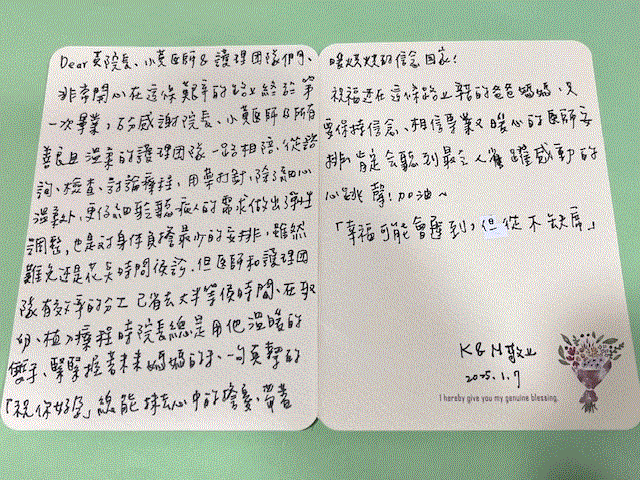 Dear 黃院長、小黃醫師 & 護理團隊們、
非常開心在這條艱辛的路上終於第
一次畢業,十分感謝院長、小黃醫師 & 所有
善良且溫柔的護理團隊一路相陪,從諮
詢、檢查、討論療程,用藥打針,除了細心
溫柔外,更仔細聆聽病人的需求做出彈性
調整,也是對身体負擔最少的安排,雖然
難免还是花長時間候診,但医師和護理团
隊有效率的分工已省去大半等候時間,在取
卵、植入療程時院長總是用他溫暖的
雙手,緊緊握著未來媽媽的手,一句真摯的
「祝你好孕」總能抹去心中的擔憂、帶著
暖烘烘的信念回家!
祝福还在這條路上辛苦的爸爸媽媽,只
要保持信念、相信專業又暖心的医師安
排,肯定会聽到最令人雀躍感動的
心跳聲!加油~
「幸福可能會遲到,但從不缺席」
K & M 敬上
2025.1.7
I hereby give you my genuine blessing.